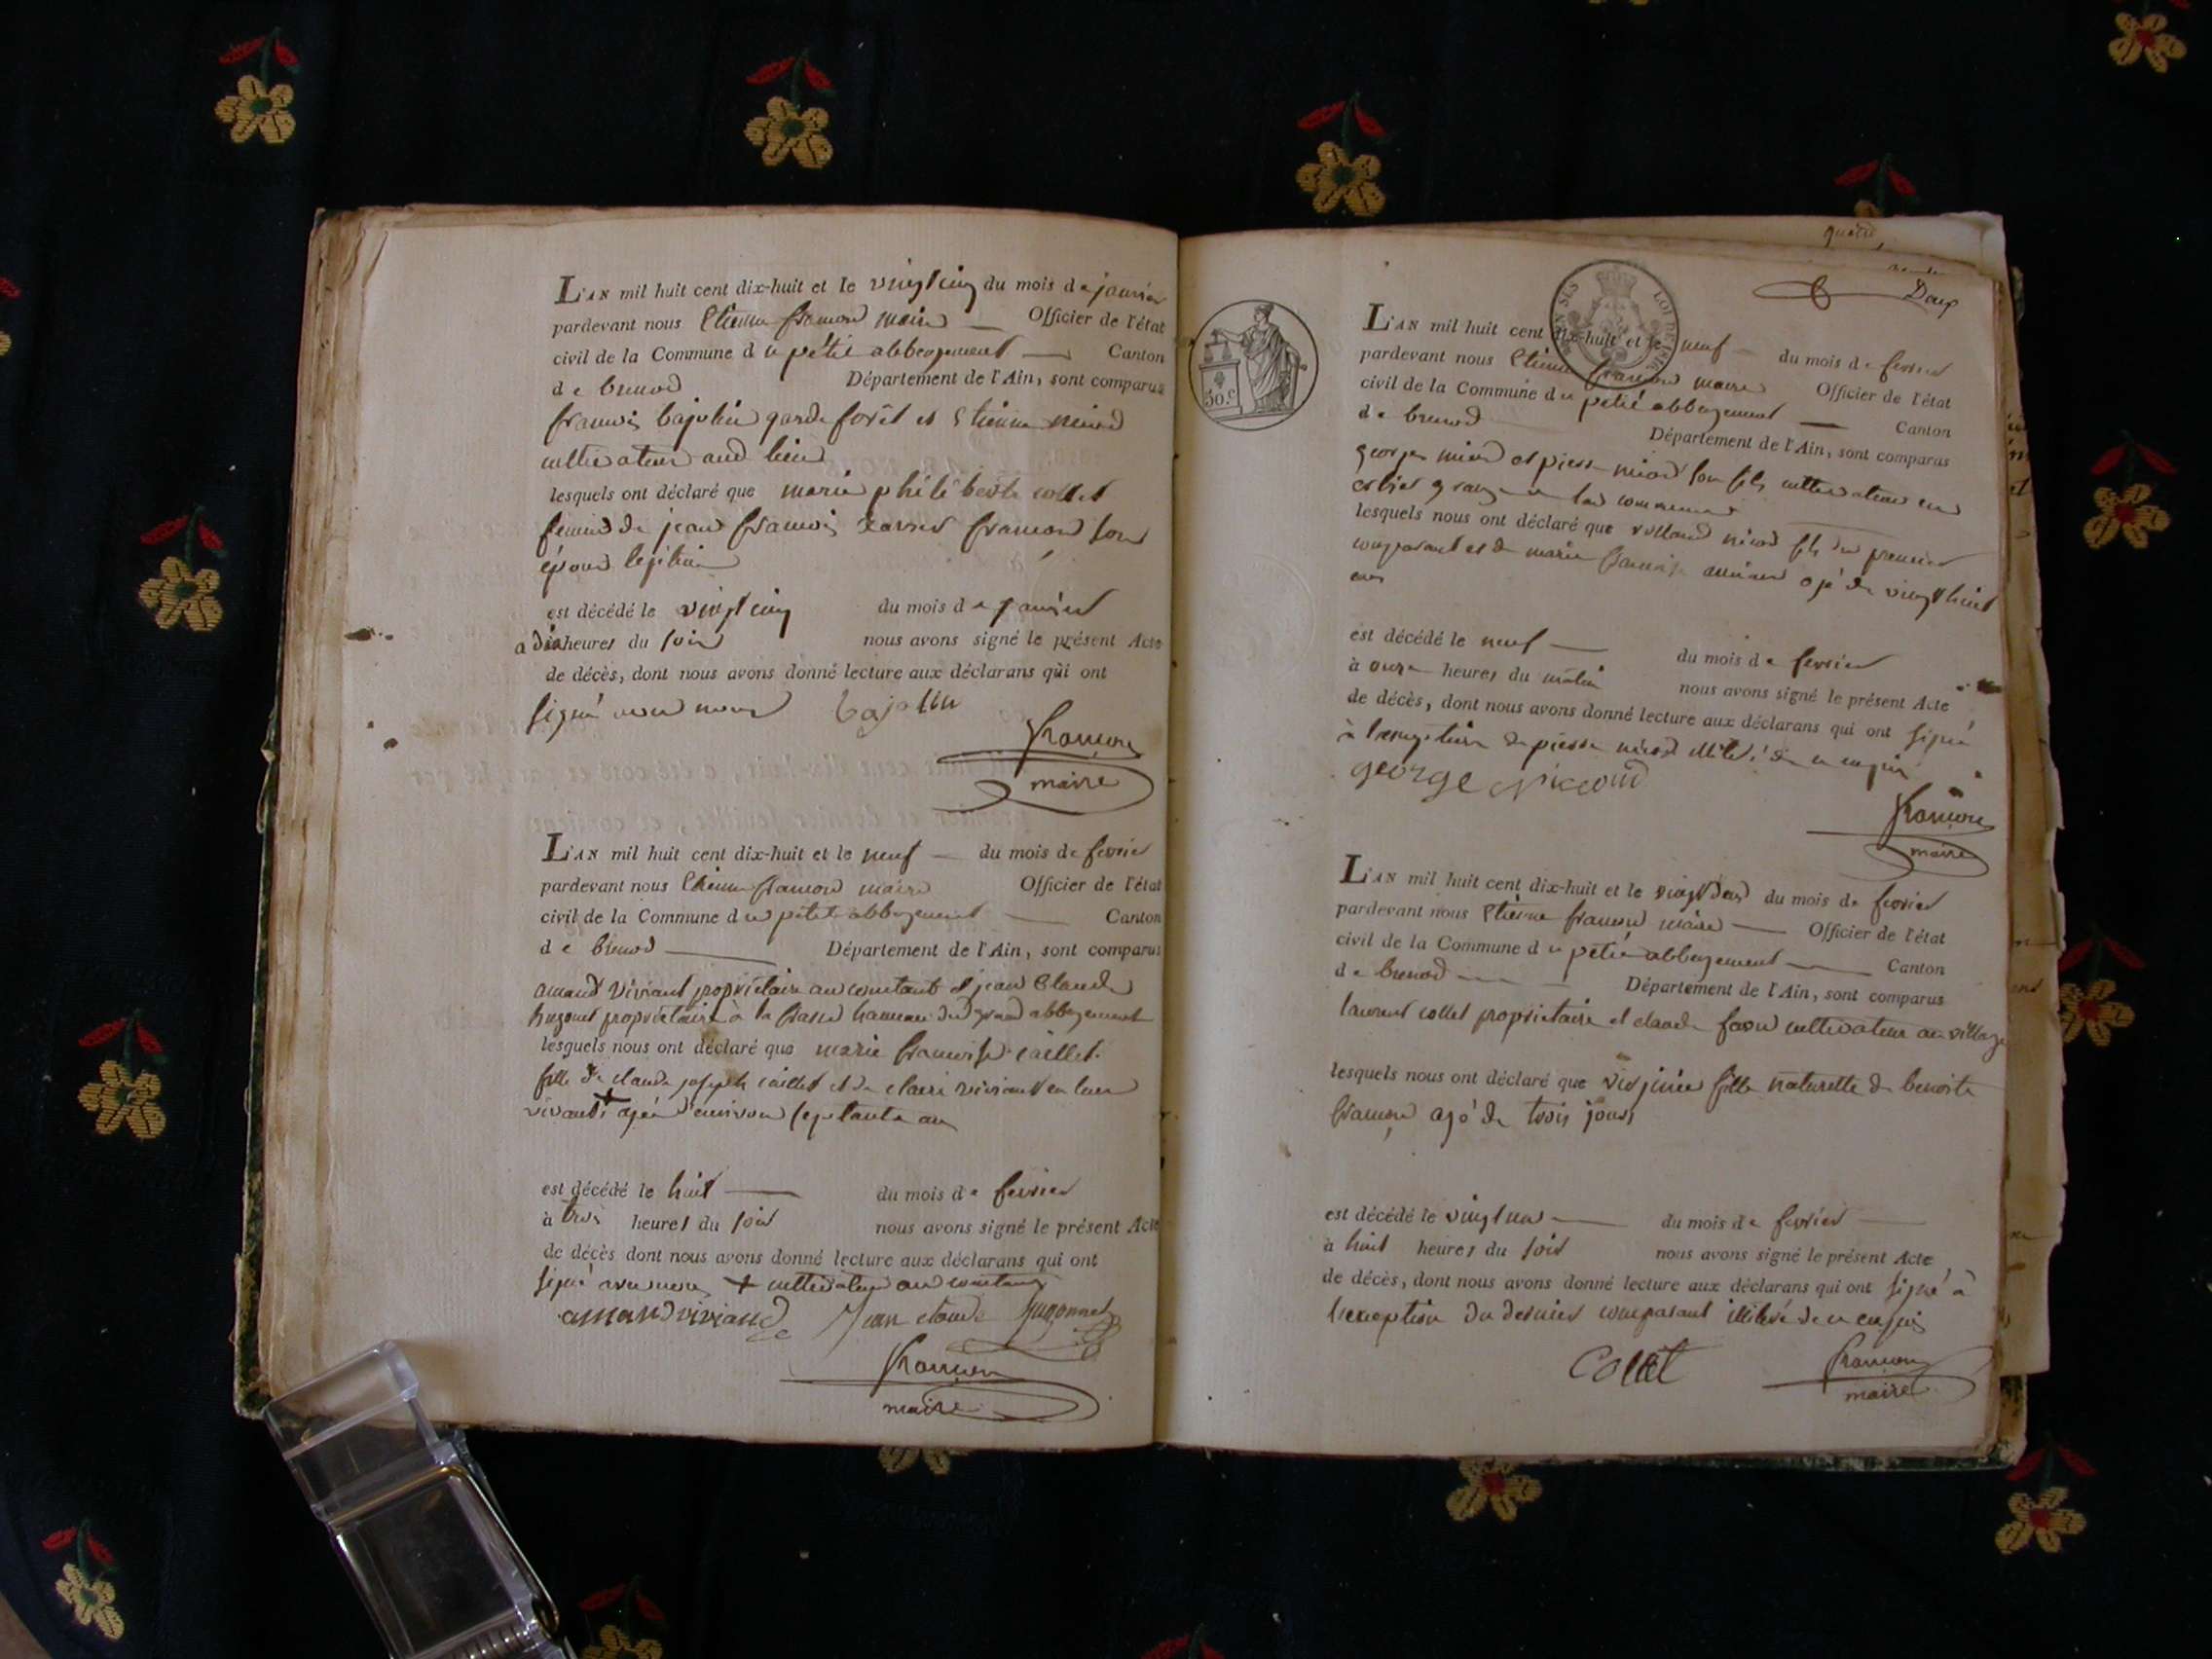 L'AN mil huit cent dix-huit et le vingt cinq du mois de janvier
pardevant nous Etienne françon maire — Officier de l'état
civil de la Commune du petit abbergement — Canton
de brenod Département de l'Ain, sont comparus
françois bajolin garde forêt et Etienne niod
cultivateur aud lieu
lesquels ont déclaré que marie philiberte collet
femme de jean françois françon son
époux legitime
est décédé le vingt cinq du mois de janvier
a dix heures du soir nous avons signé le présent Acte
de décès, dont nous avons donné lecture aux déclarans qui ont
signé avec nous bajolin
françon
maire
L'AN mil huit cent dix-huit et le neuf — du mois de fevrier
pardevant nous Etienne françon maire Officier de l'état
civil de la Commune du petit abbergement — Canton
de brenod — Département de l'Ain, sont comparus
amand viviand propriétaire au et jean Claude
hugonet propriétaire à la hameau du grand abbergement
lesquels nous ont déclaré que marie françoise caillet
fille de claude joseph caillet et de claire viviand en leur
vivant + agée d'environ septante ans
est décédé le huit — du mois de fevrier
à trois heures du soir nous avons signé le présent Acte
de décès dont nous avons donné lecture aux déclarans qui ont
signé avec nous + cultivateur au
amand viviand Jean claude hugonnet
françon
maire
Deux
L'AN mil huit cent dix-huit et le neuf — du mois de fevrier
pardevant nous Etienne françon maire Officier de l'état
civil de la Commune du petit abbergement — Canton
de brenod Département de l'Ain, sont comparus
george et pierre son fils cultivateur
lesquels nous ont déclaré que rolland fils du premier
comparant et de marie françoise agé de vingt huit
ans
est décédé le neuf — du mois de fevrier
à onze heures du matin nous avons signé le présent Acte
de décès, dont nous avons donné lecture aux déclarans qui ont signé
à l'exception de pierre illitéré de ce enquis
george
françon
maire
L'AN mil huit cent dix-huit et le vingt deux du mois de fevrier
pardevant nous Etienne françon maire — Officier de l'état
civil de la Commune du petit abbergement — Canton
de brenod — Département de l'Ain, sont comparus
laurent collet proprietaire et claude cultivateur au village
lesquels nous ont déclaré que virjinie fille naturelle de benoite
françon agé de trois jours
est décédé le vingt un — du mois de fevrier —
à huit heures du soir nous avons signé le présent Acte
de décès, dont nous avons donné lecture aux déclarans qui ont signé à
l'exception du dernier comparant illitéré de ce enquis
Collet françon
maire
50.c